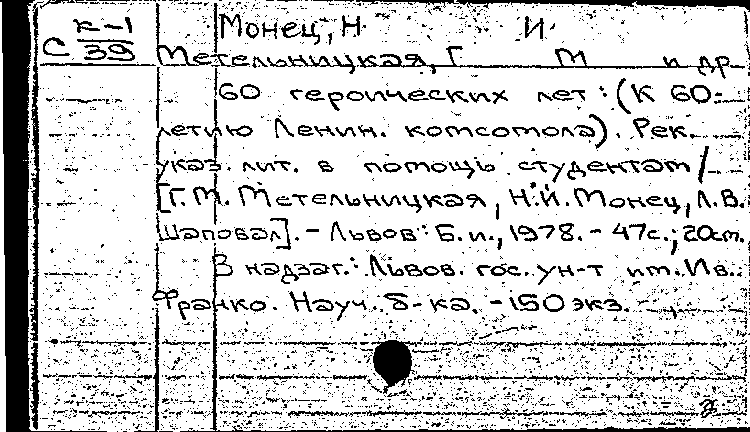 К-1
С 39
Монец, Н И.
Метельницкая, Г М и др
60 героических лет: (К 60-
летию Ленин. комсомола). Рек.
указ. лит. в помощь студентам /
[Г.М. Метельницкая, Н.И. Монец, Л.В.
Шаповал]. - Львов: Б.и., 1978. - 47с.; 20см.
В надзаг.: Львов. гос. ун-т им. Ив.
Франко. Науч. б-ка. - 150 экз.